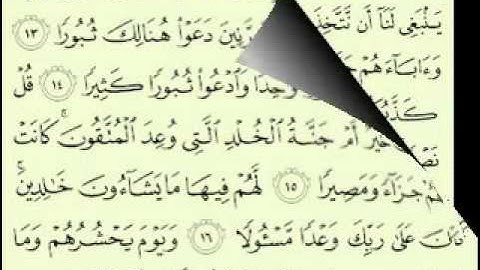 يَنۢبَغِى لَنَآ أَن نَّتَّخِذَ دَعَوْا۟ هُنَالِكَ ثُبُورًا ١٣
وَءَابَآءَهُمْ وَٰحِدًا وَٱدْعُوا۟ ثُبُورًا كَثِيرًا ١٤ قُلْ
خَيْرٌ أَمْ جَنَّةُ ٱلْخُلْدِ ٱلَّتِى وُعِدَ ٱلْمُتَّقُونَ ۚ كَانَتْ
لَهُمْ جَزَآءً وَمَصِيرًا ١٥ لَّهُمْ فِيهَا مَا يَشَآءُونَ خَٰلِدِينَ ۚ
كَانَ عَلَىٰ رَبِّكَ وَعْدًا مَّسْـُٔولًا ١٦ وَيَوْمَ يَحْشُرُهُمْ وَمَا